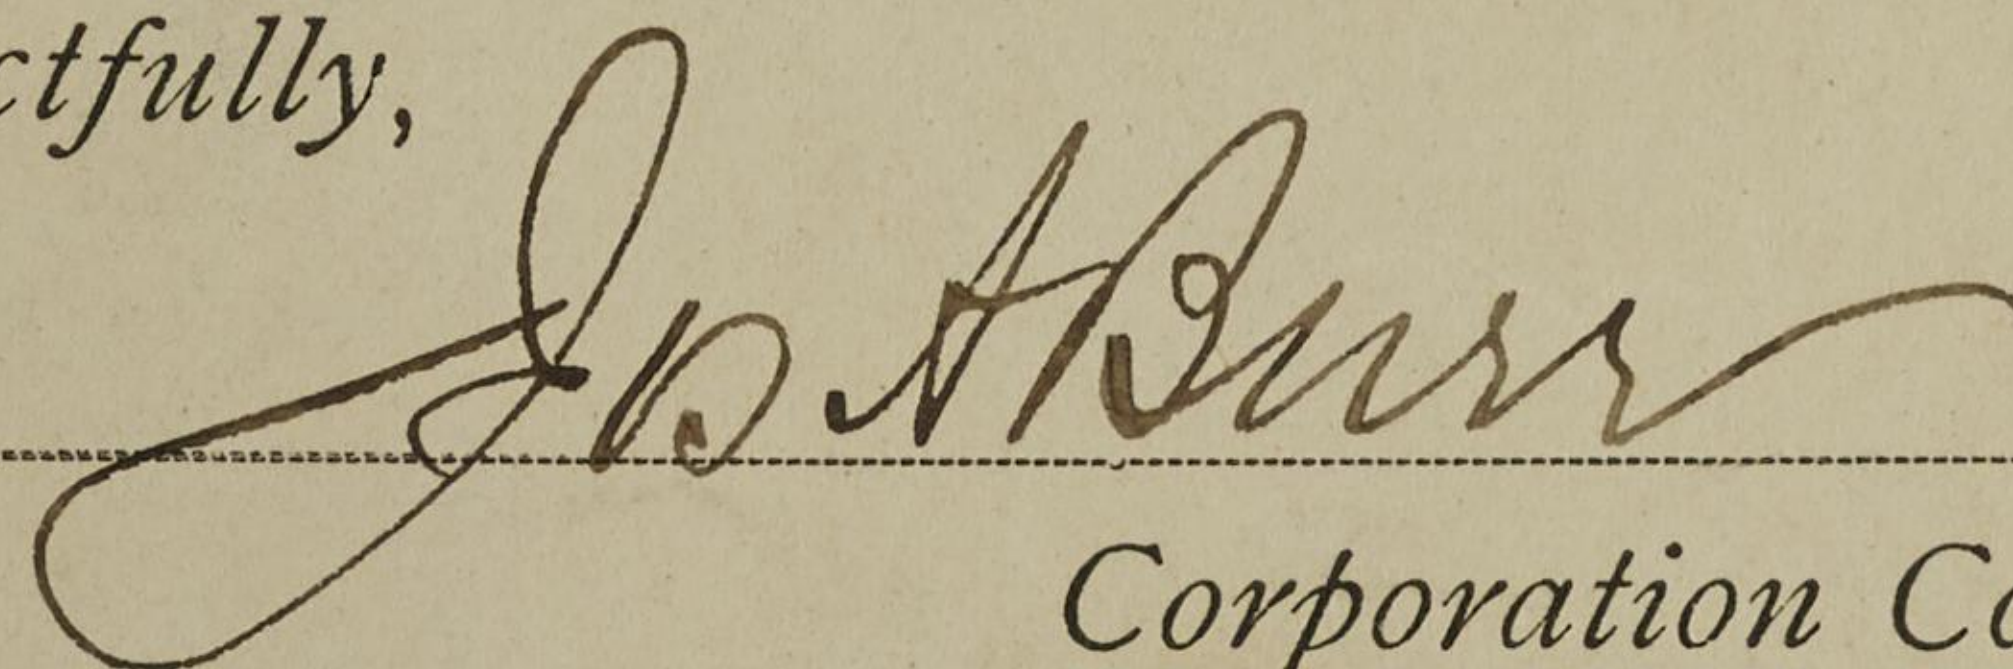 ctfully,
Jos A Burr
Corporation Co